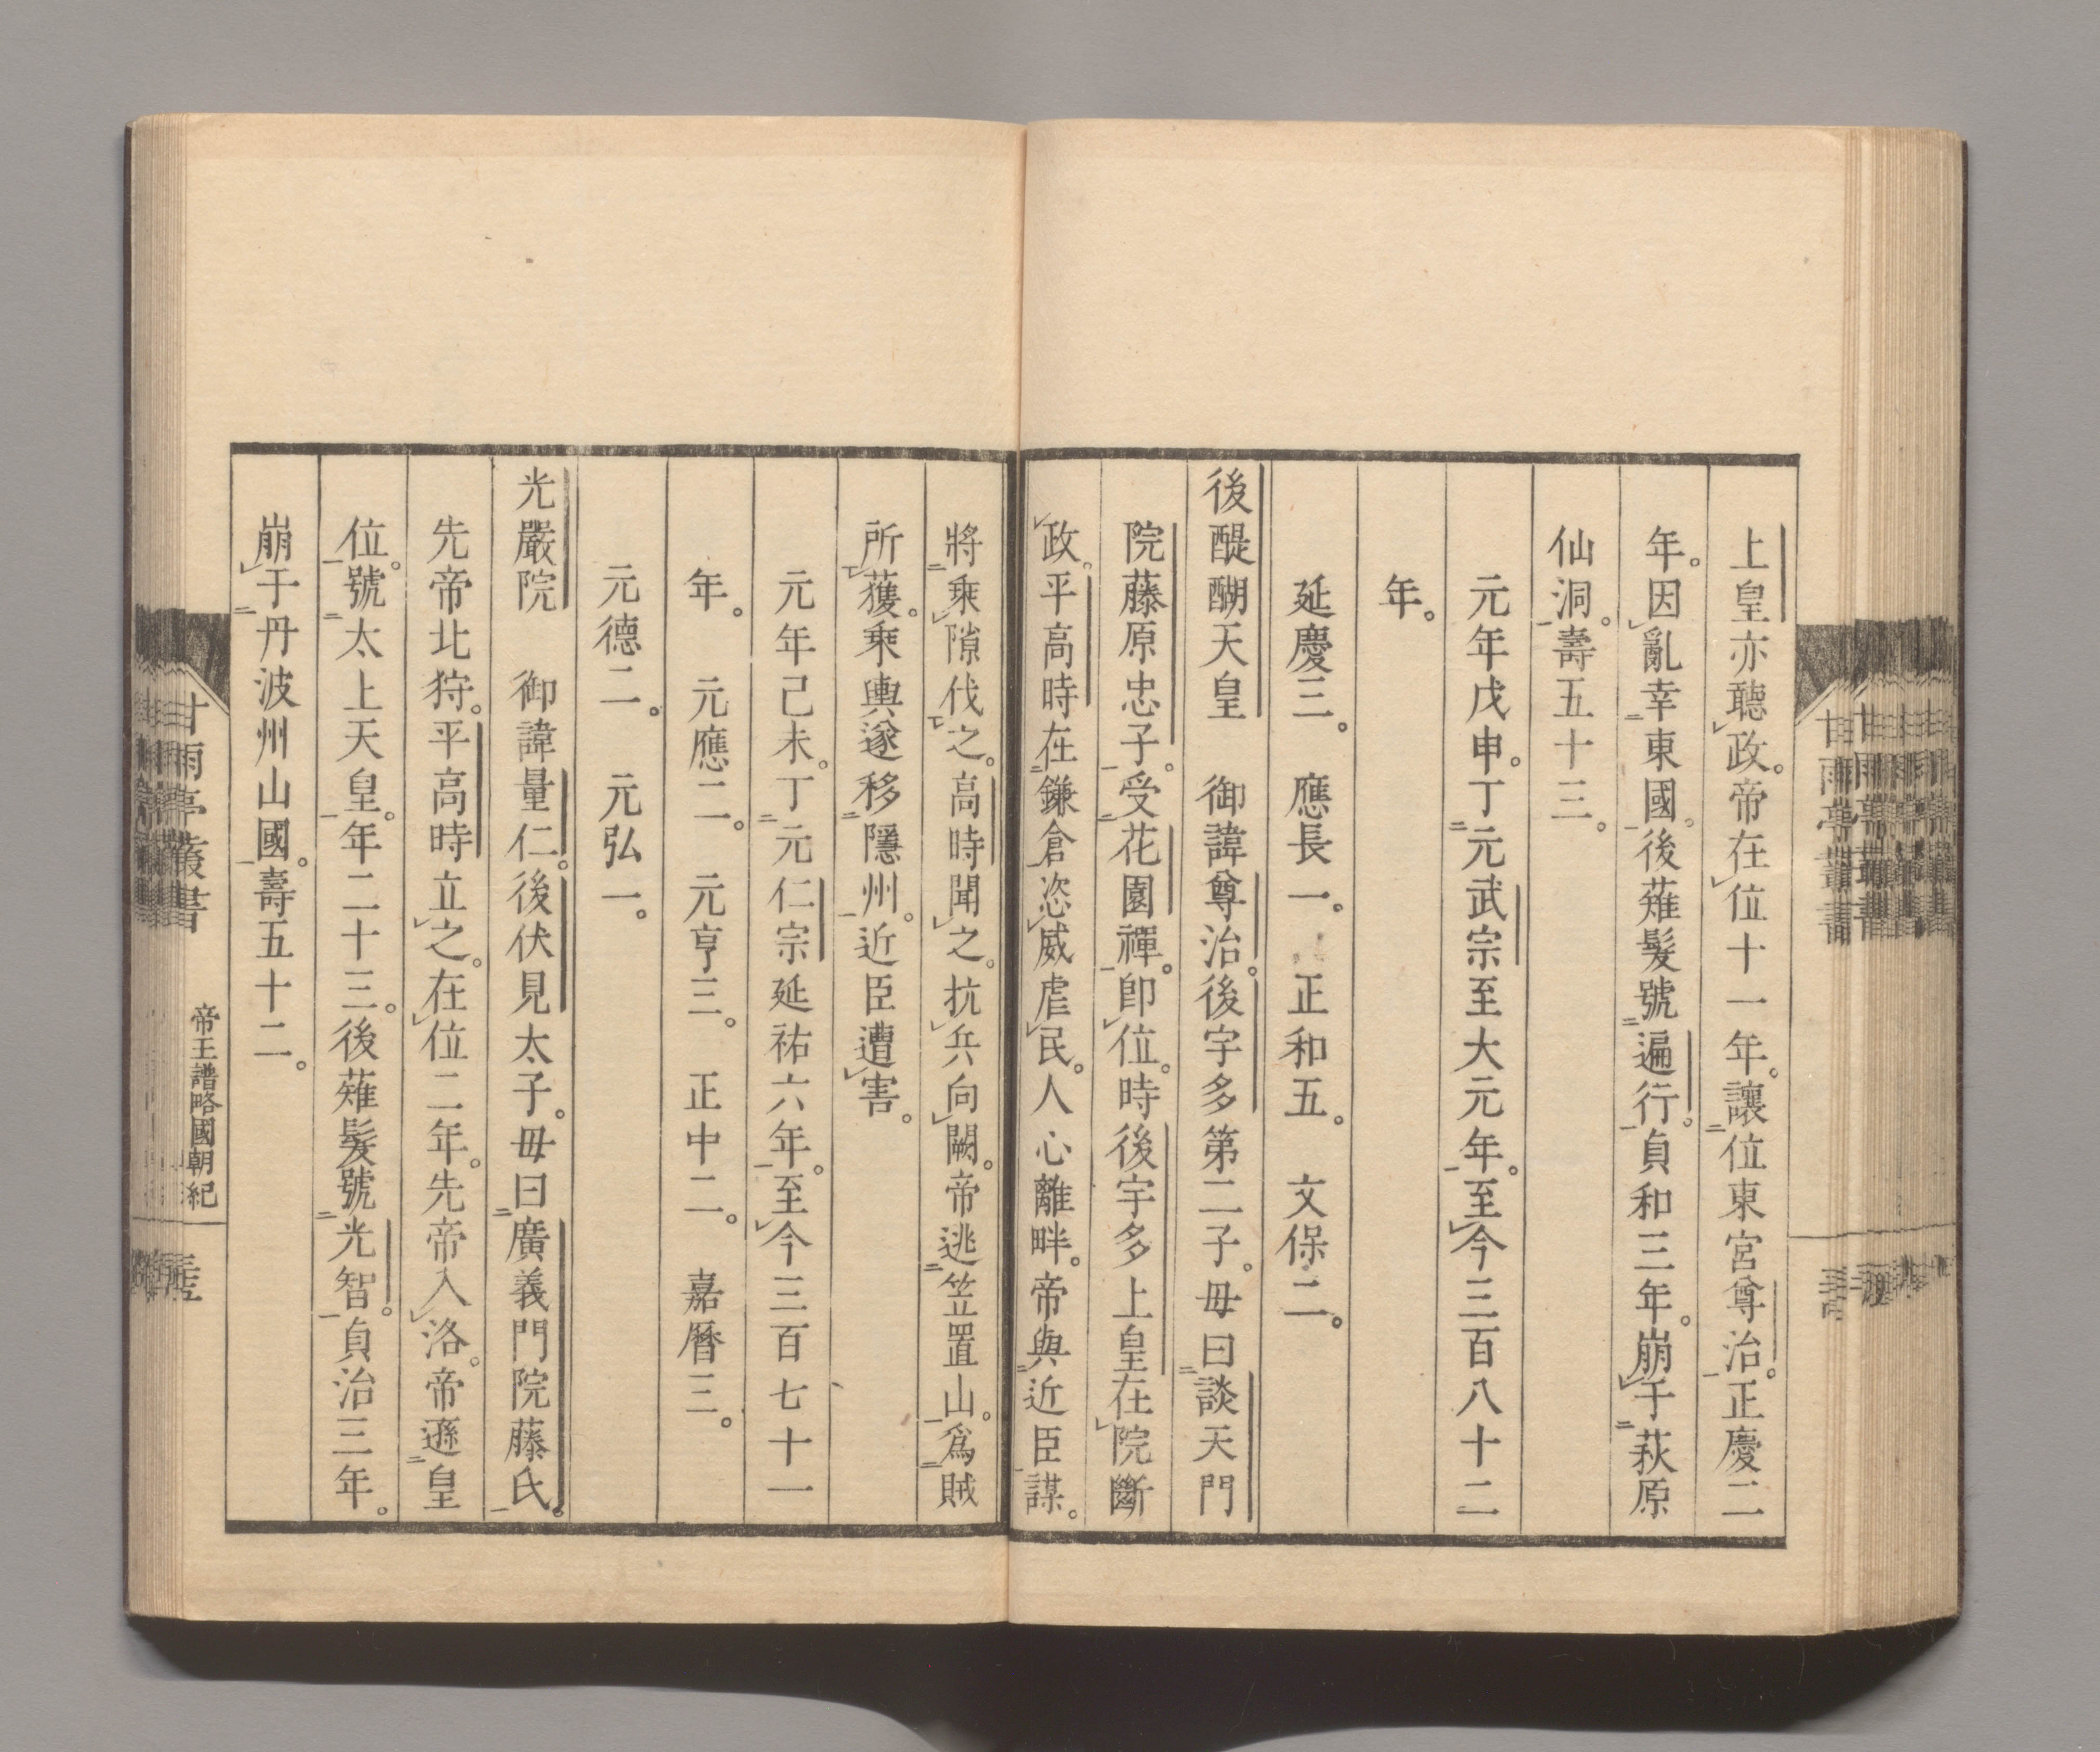 上皇亦聽政。帝在位十一年。讓位東宮尊治。正慶二
年。因亂幸東國。後薙髮號遍行。貞和三年。崩于萩原
仙洞。壽五十三。
元年戊申。丁元武宗至大元年。至今三百八十二
年。
延慶三。 應長一。 正和五。 文保二。
後醍醐天皇 御諱尊治。後宇多第二子。母曰談天門
院藤原忠子。受花園禪。卽位。時後宇多上皇在院斷
政。平高時在鎌倉恣威虐民。人心離畔。帝與近臣謀。
將乘隙伐之。高時聞之。抗兵向闕。帝逃笠置山。爲賊
所獲。乘輿遂移隱州。近臣遭害。
元年己未。丁元仁宗延祐六年。至今三百七十一
年。 元應二。 元亨三。 正中二。 嘉曆三。
元德二。 元弘一。
光嚴院 御諱量仁。後伏見太子。母曰廣義門院藤氏。
先帝北狩。平高時立之。在位二年。先帝入洛。帝遜皇
位。號太上天皇。年二十三。後薙髮號光智。貞治三年。
崩于丹波州山國。壽五十二。
甘雨亭叢書
帝王譜略國朝紀